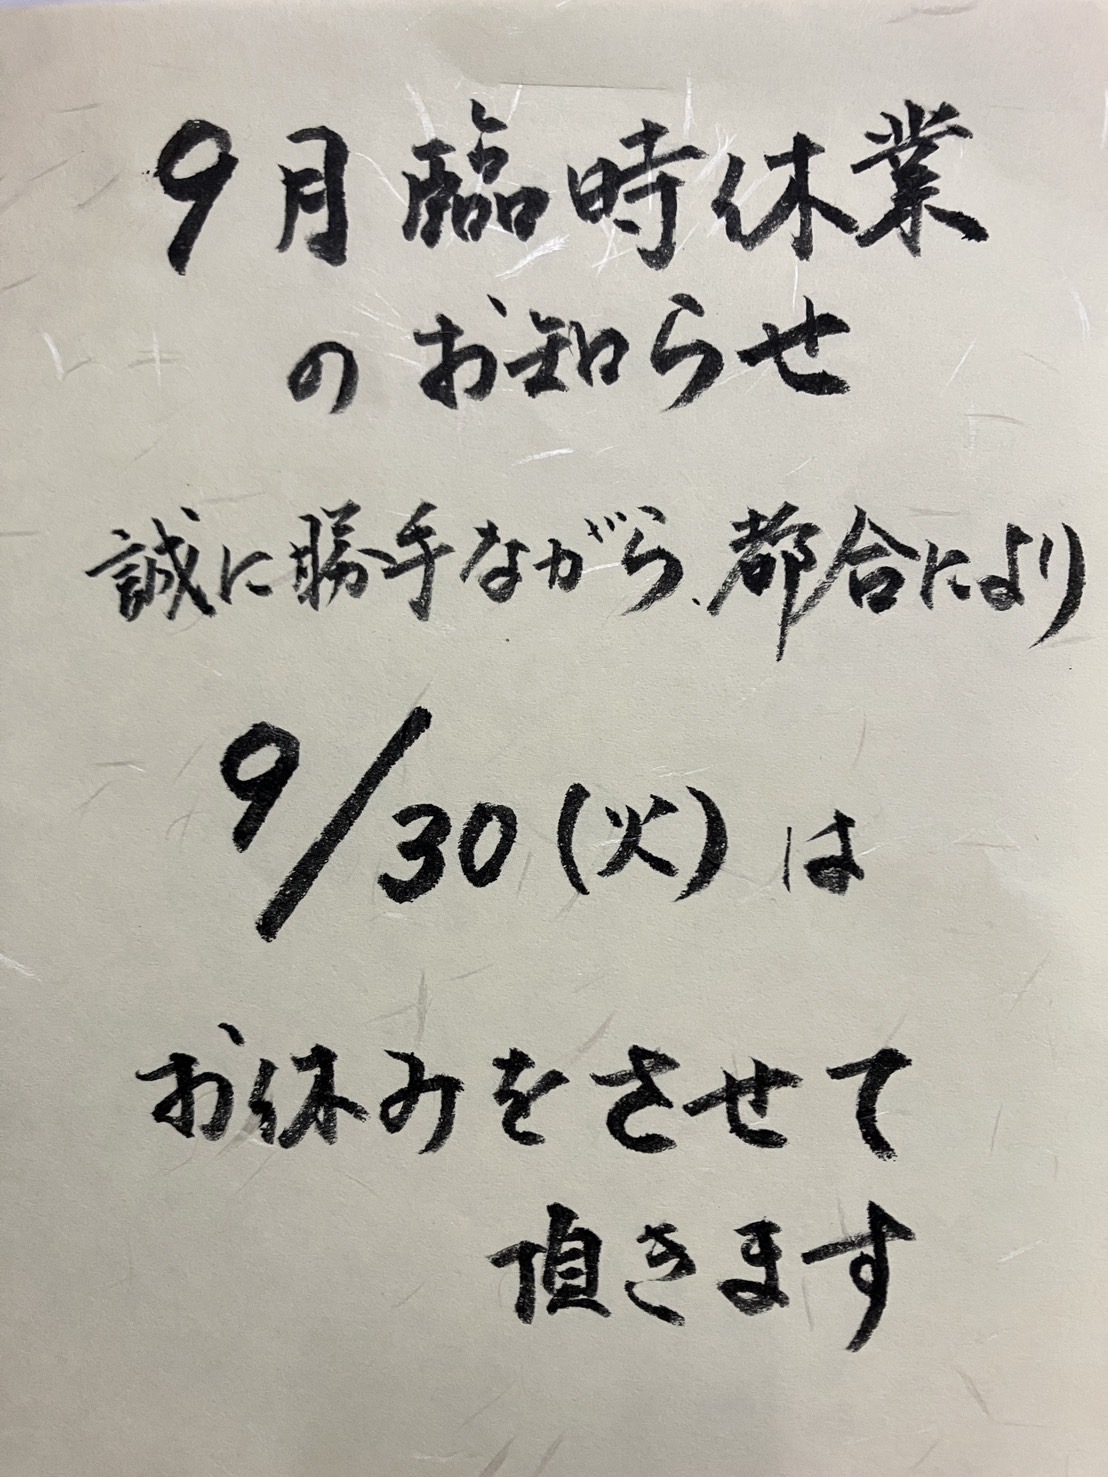 9月臨時休業
のお知らせ
誠に勝手ながら、都合により
9/30(火)は
お休みをさせて
頂きます